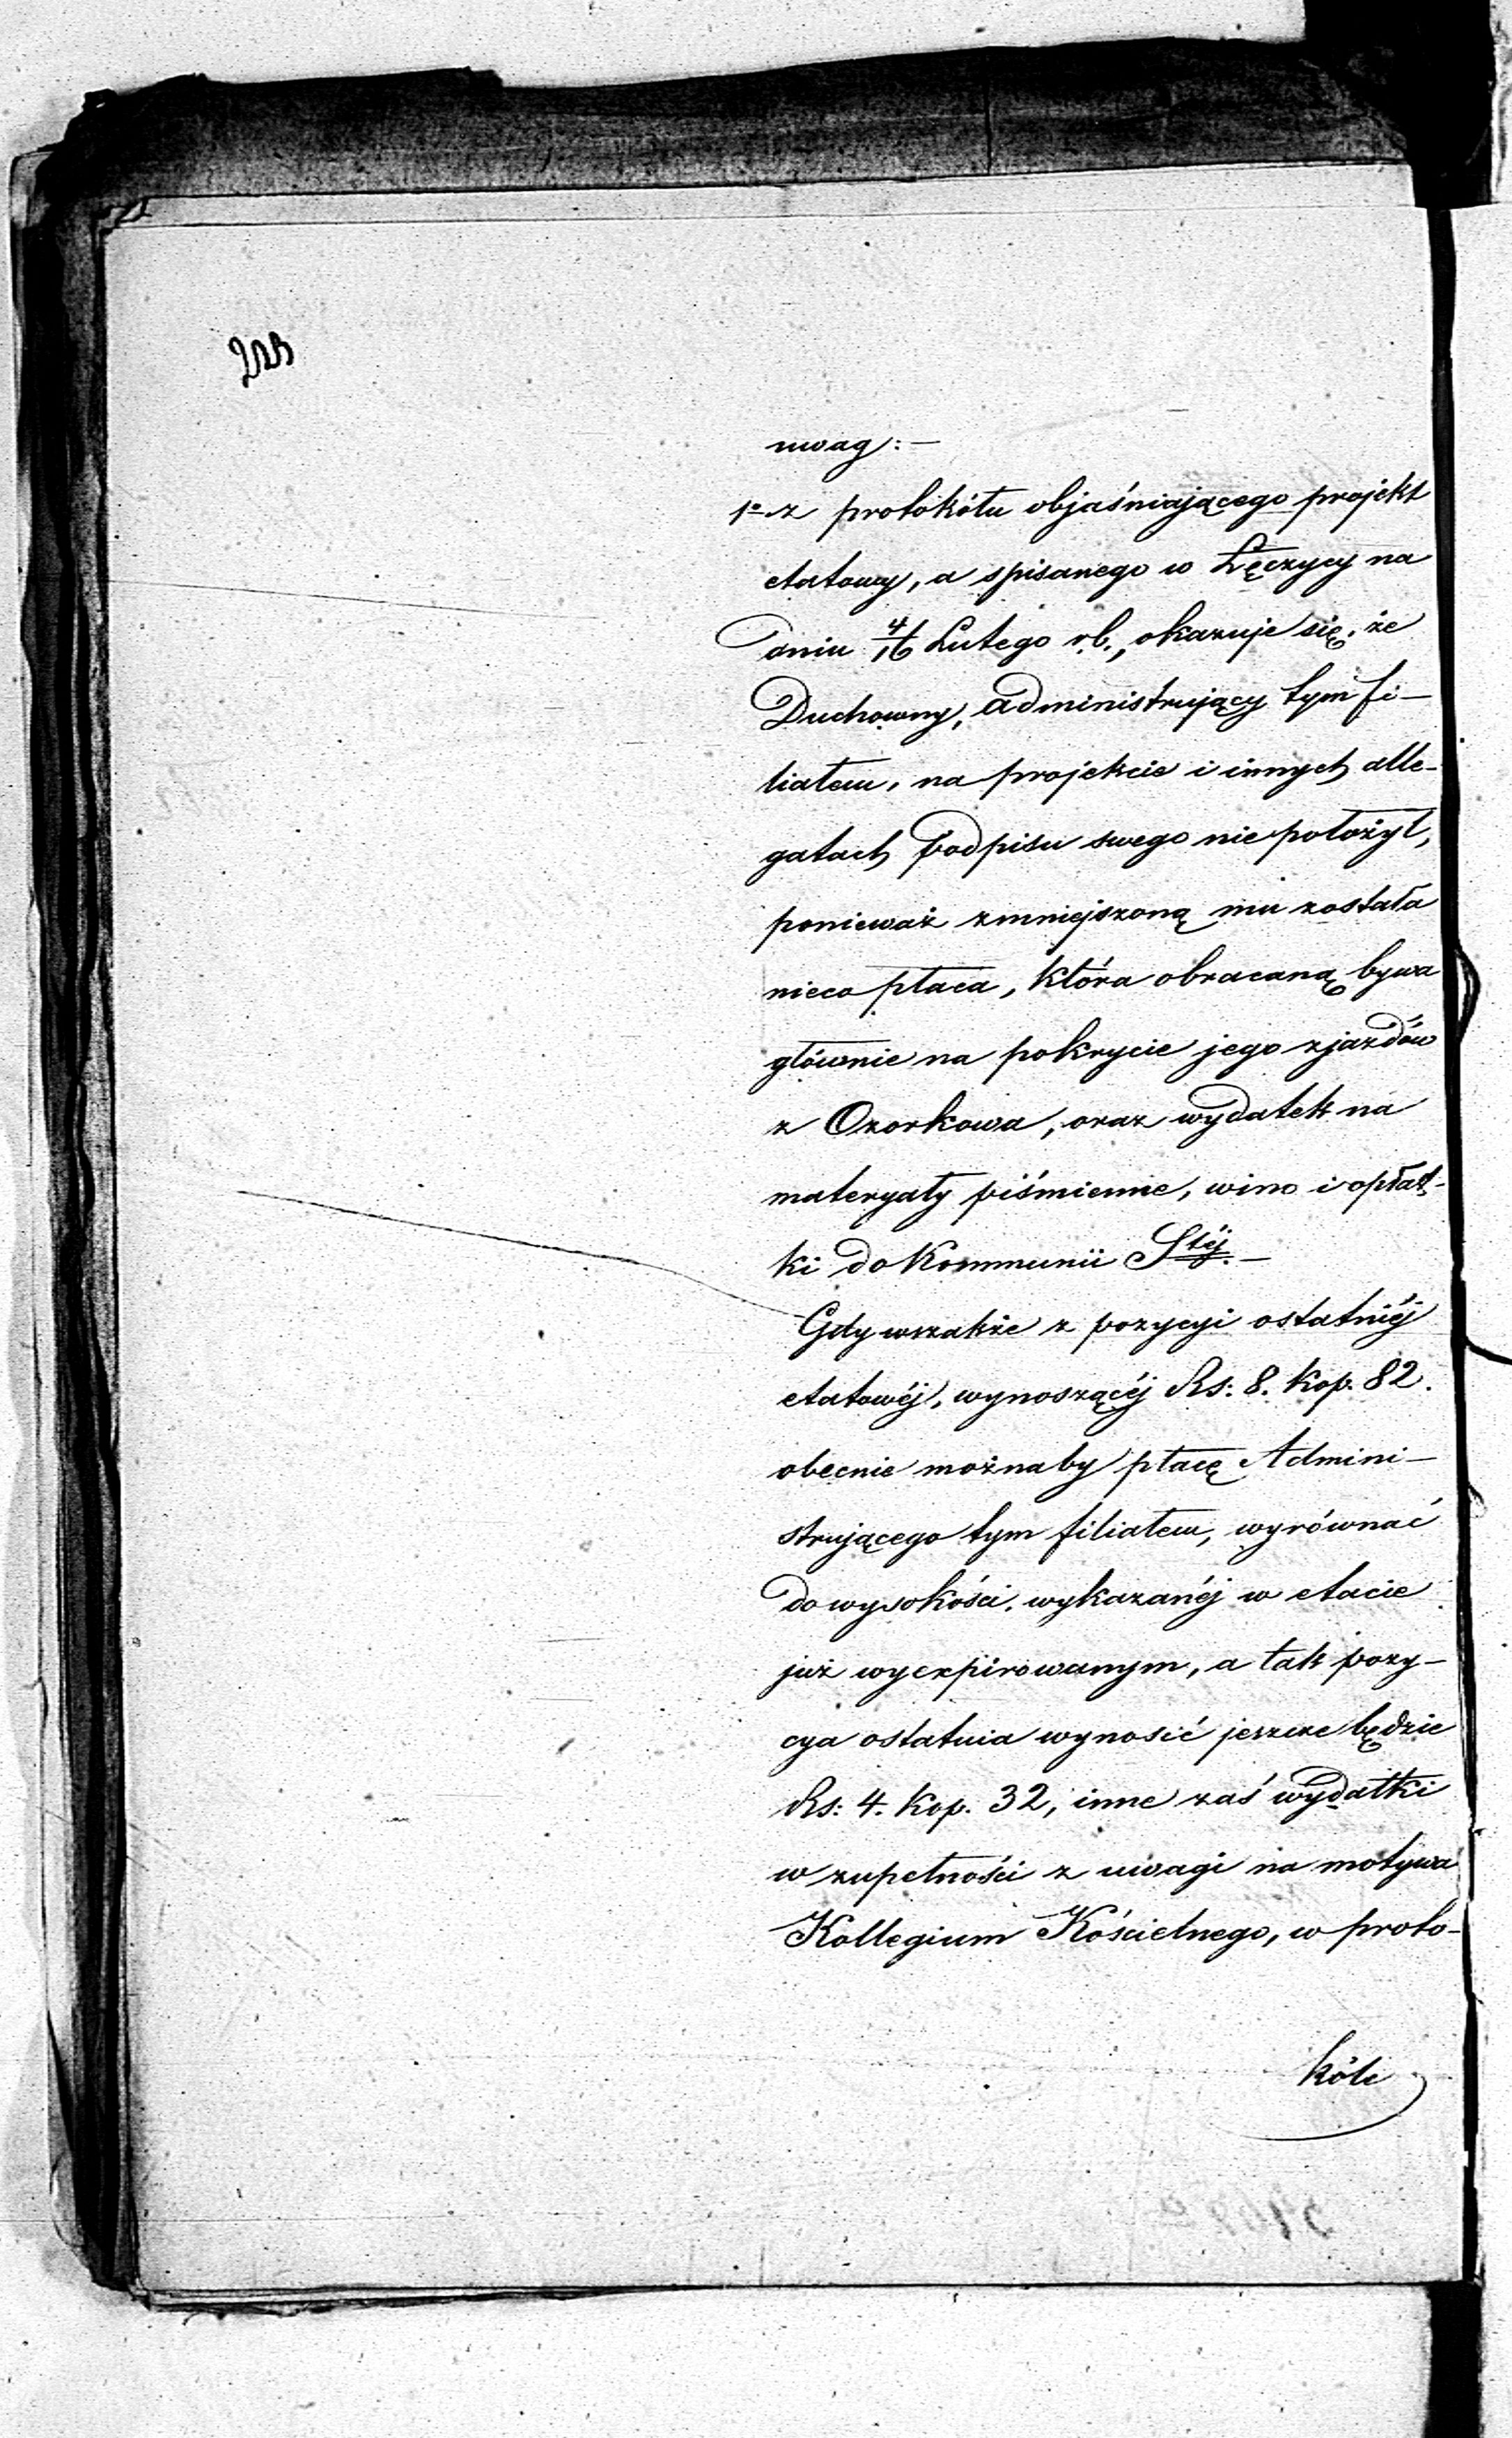 uwag:—
1º z protokółu objaśniającego projekt
etatowy, a spisanego w Łęczycy na
dniu 4/16 Lutego r.b., okazuje się, że
Duchowny, administrujący tym fi-
liałem, na projekcie i innych alle-
gatach podpisu swego nie położył,
ponieważ zmniejszoną mu została
nieco płaca, która obracaną bywa
głównie na pokrycie jego zjazdów
z Ozorkowa, oraz wydatek na
materyały piśmienne, wino i opłat-
ki do Kommunii Stéj.—
Gdy wszakże z pozycyi ostatniéj
etatowéj, wynoszącéj Rs: 8. kop. 82.
obecnie możnaby płacę Admini-
strującego tym filiałem, wyrównać
do wysokości, wykazanéj w etacie
już wyexpirowanym, a tak pozy-
cya ostatnia wynosić jeszcze będzie
Rs: 4. kop. 32, inne zaś wydatki
w zupełności z uwagi na motywa
Kollegium Kościelnego, w proto-
kóle